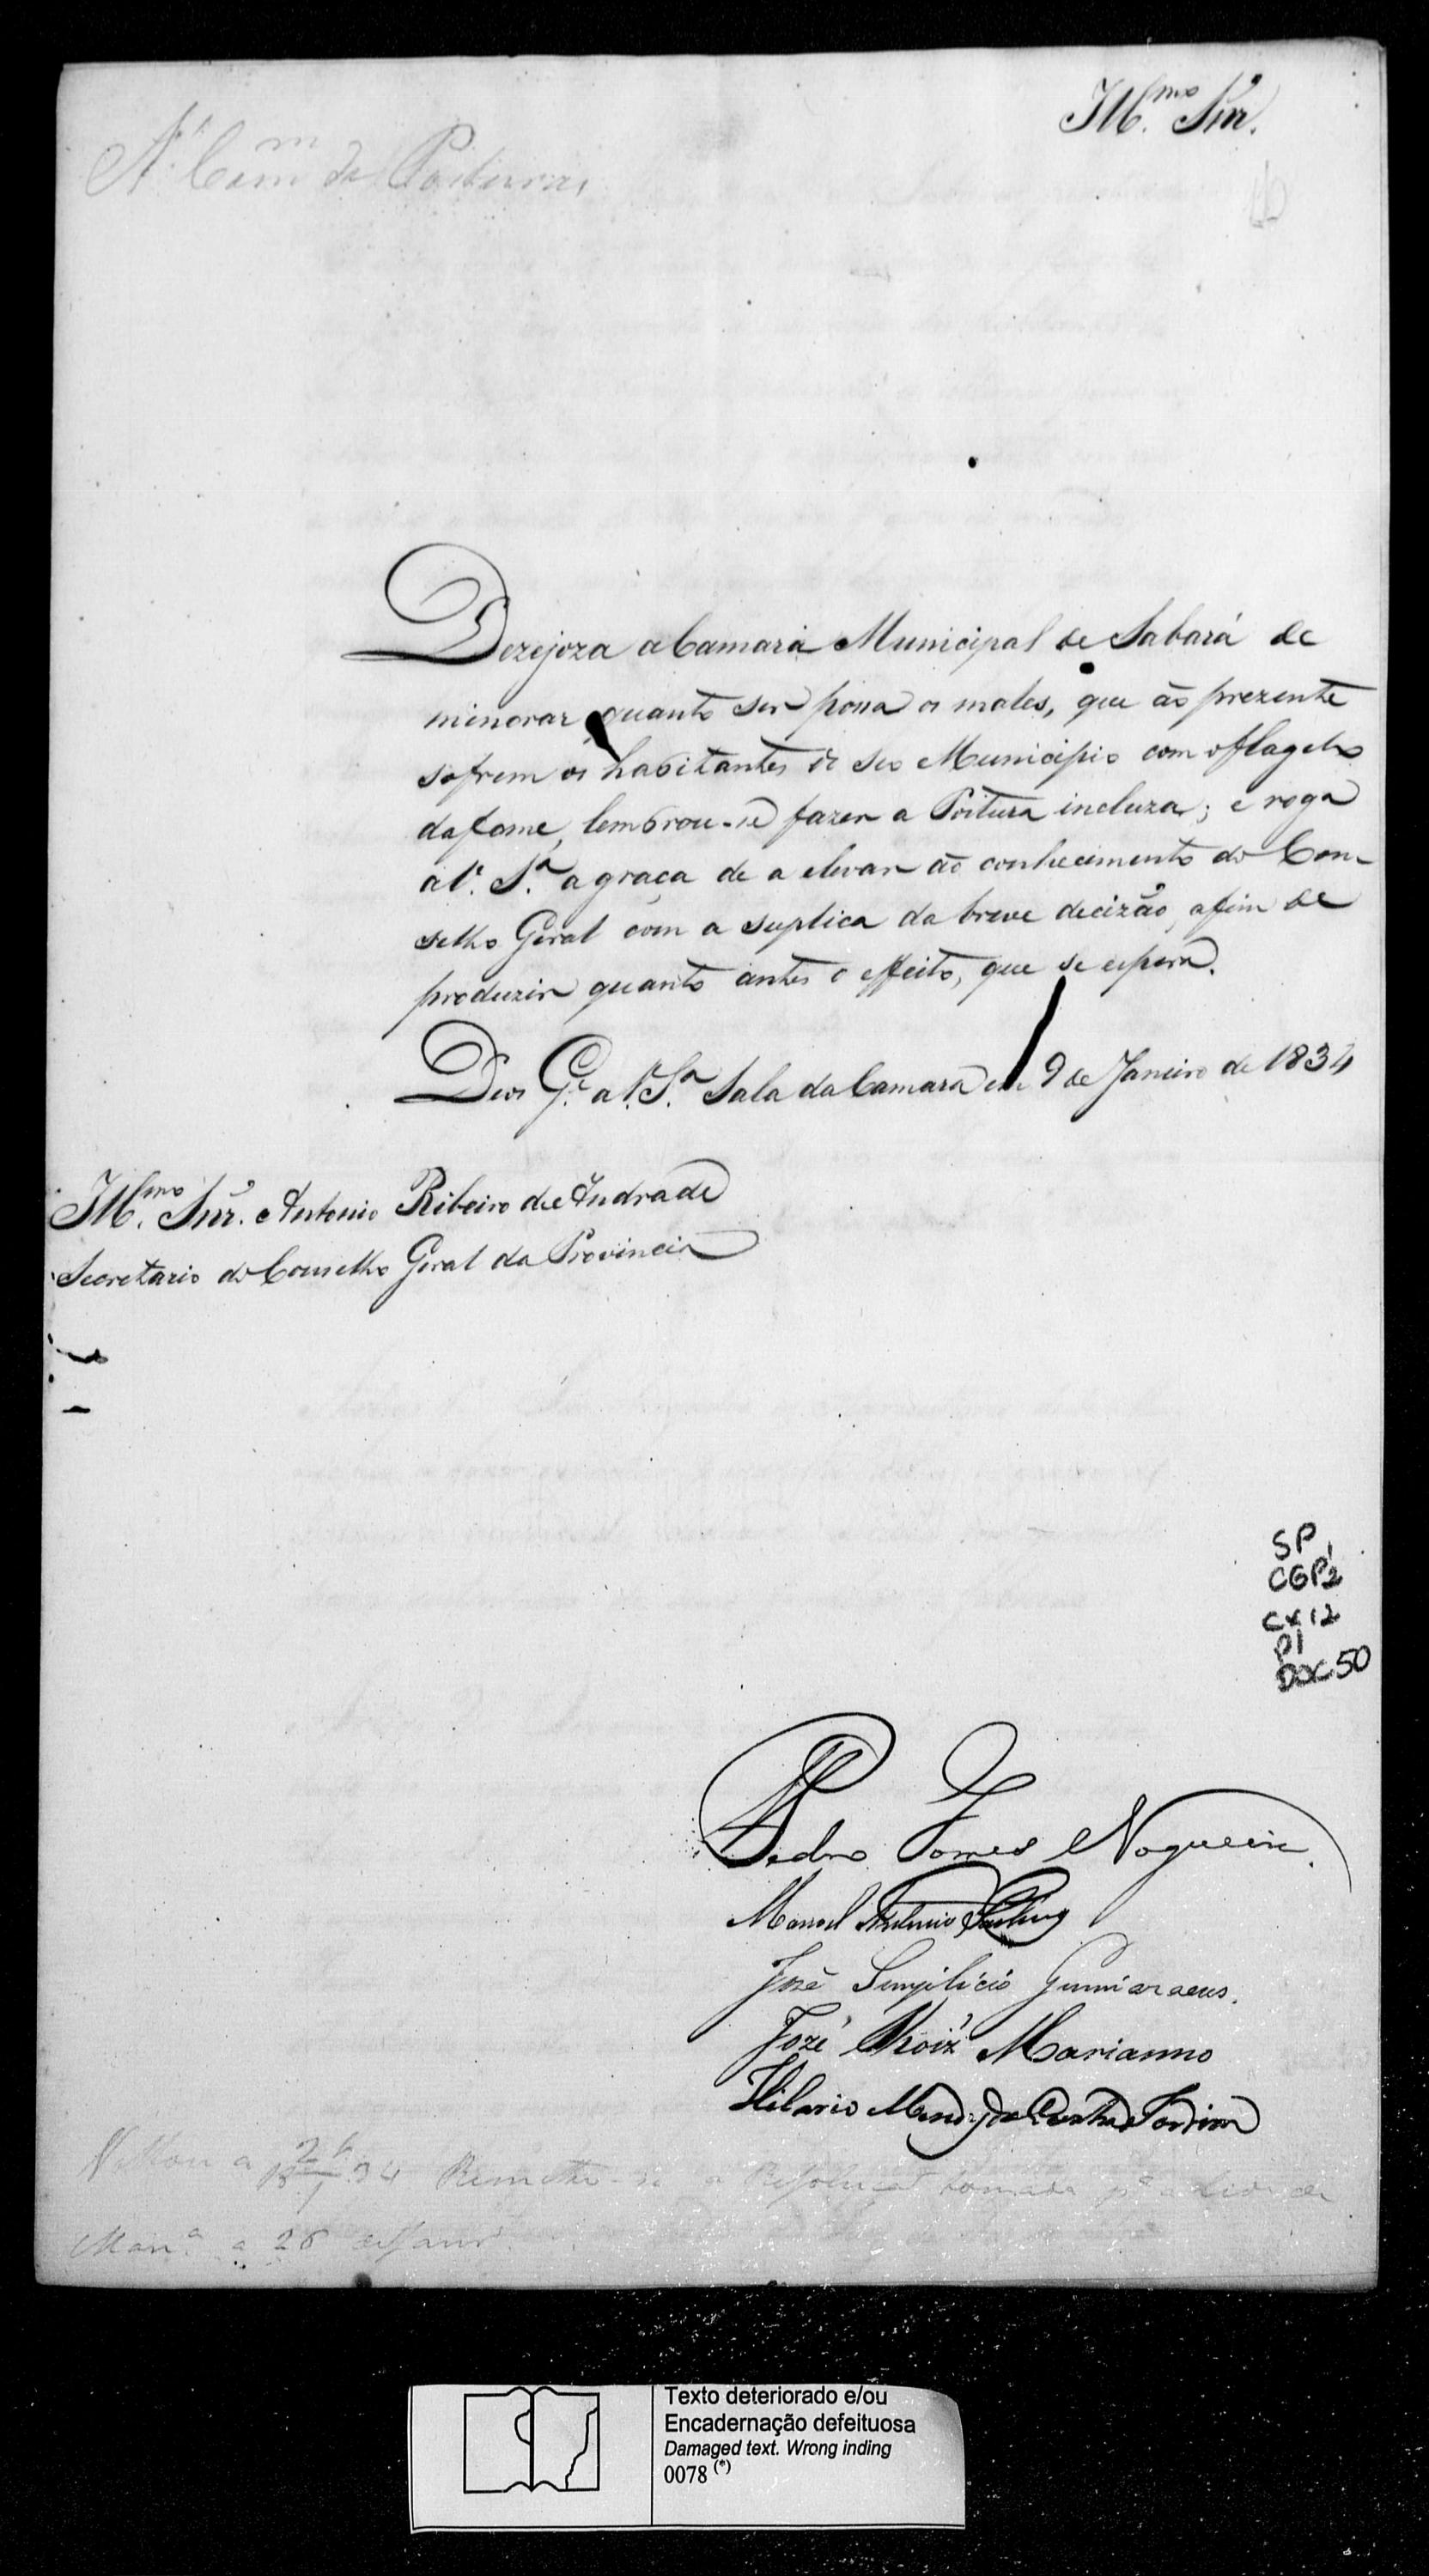 Ill.mo Snr.
A' Com.m de Posturas
Dezejoza a Camara Municipal de Sabará de
minorar quanto ser possa os males, que ao prezente
sofrem os habitantes de seo Municipio com o flagelo
da fome, lembrou-se fazer a Postura incluza; e roga
a V. S.a a graça de a elevar ao conhecimento do Con-
selho Geral com a suplica da breve decizão, afim de
produzir quanto antes o effeito, que se espera.
Deos G.e a V. S.a Sala da Camara em 9 de Janeiro de 1834
Ill.mo Snr. Antonio Ribeiro de Andrade
Secretario do Conselho Geral da Provincia
SP
CGP2
CX 12
P1
DOC 50
Pedro Gomes Nogueira.
Manoel Antonio
José Simplicio Guimaraens.
Jozé Roiz' Marianno
Hilario Mend.s da Cunha
34 Remette-se a Resolução tomada
Mari.a a 28
Texto deteriorado e/ou
Encadernação defeituosa
Damaged text. Wrong inding
0078 (*)